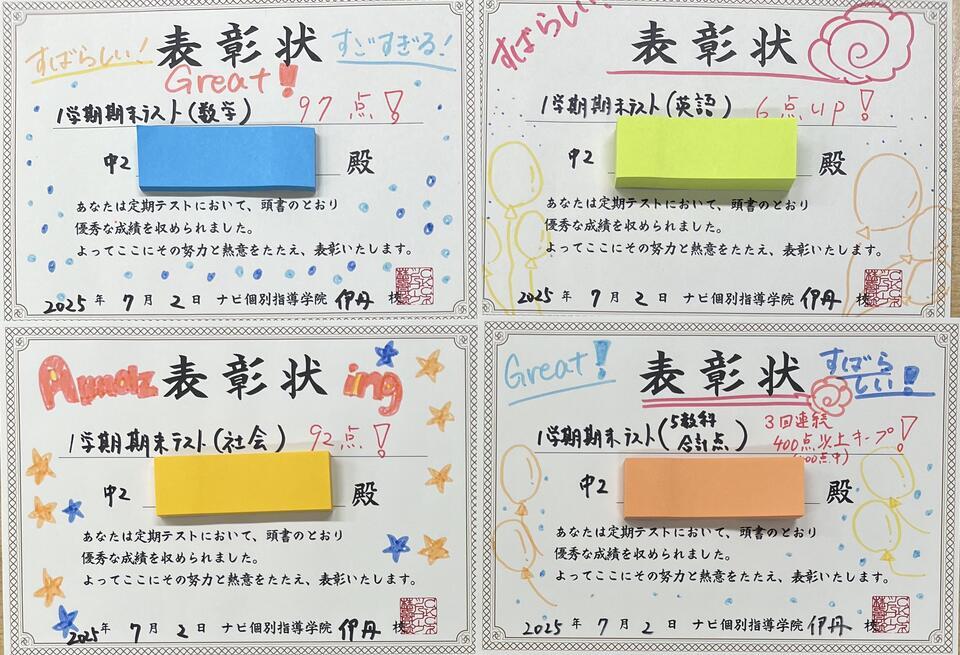 すばらしい! 表彰状 すごすぎる!
Great!
1学期期末テスト(数学) 97点!
中2 殿
あなたは定期テストにおいて、頭書のとおり
優秀な成績を収められました。
よってここにその努力と熱意をたたえ、表彰いたします。
2025年 7月 2日 ナビ個別指導学院 伊丹 校
すばらしい! 表彰状
1学期期末テスト(英語) 6点up!
中2 殿
あなたは定期テストにおいて、頭書のとおり
優秀な成績を収められました。
よってここにその努力と熱意をたたえ、表彰いたします。
2025年 7月 2日 ナビ個別指導学院 伊丹 校
表彰状
1学期期末テスト(社会) 92点!
中2 殿
あなたは定期テストにおいて、頭書のとおり
優秀な成績を収められました。
よってここにその努力と熱意をたたえ、表彰いたします。
2025年 7月 2日 ナビ個別指導学院 伊丹 校
Great! 表彰状 すばらしい!
1学期期末テスト(5教科合計点) 3回連続
400点以上キープ!
中2 殿
あなたは定期テストにおいて、頭書のとおり
優秀な成績を収められました。
よってここにその努力と熱意をたたえ、表彰いたします。
2025年 7月 2日 ナビ個別指導学院 伊丹 校